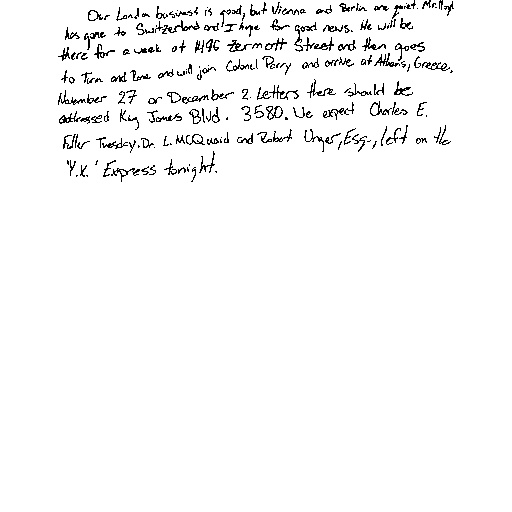 Our London business is good, but Vienna and Berlin are quiet. Mr. Lloyd
has gone to Switzerland and I hope for good news. He will be
there for a week at 1496 Zermott Street and then goes
to Turin and Rome and will join Colonel Parry and arrive at Athens, Greece,
November 27 or December 2. Letters there should be
addressed King James Blvd. 3580. We expect Charles E.
Fuller Tuesday. Dr. L. McQuaid and Robert Unger, Esq., left on the
'Y.X.' Express tonight.